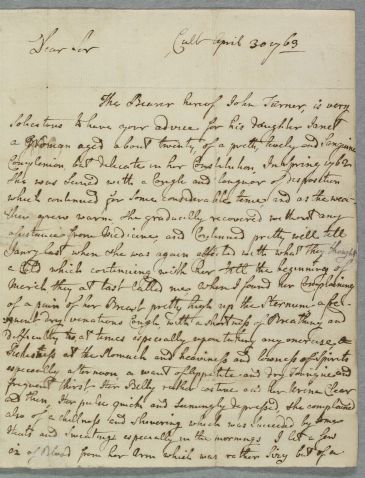 Dear Sir Cult April 30 1763
The Bearer hereof John Turner, is very
Solicitous to have your advice for his Daughter Janet
a Woman aged about twenty, of a pretty lively and Sanguine
Complexion but delicate in her Constitution, In Spring 1762
She was Seised with a Cough and languor of disposition
which continued for Some considerable time and as the wea-
ther grew warm She gradually recovered without any
assistance from Medicine and Continued pretty well till
Janry last when She was again affected with what they thought
a Cold which continuing with her till the beginning of
March they at last Called me when I found her Complaining
of a pain of her Breast pretty high up the Sternum a fre
quent dry vexatious Cough with a shortness of Breathing and
difficulty at times especially upon taking any exercise, a
Sickness at the Stomach and heaviness and lowness of Spirits
especially afternoon a want of appetite and dry Tongue and
frequent thirst Her Belly rather costive and her Urine Clear
and thin, Her pulse quick and seemingly depressed, She complained
also of a chillness and Shivering which was Succeeded by Some
Heats and Sweatings especially in the mornings I let a few
oz of Blood from her Arm which was rather Sizy but of a